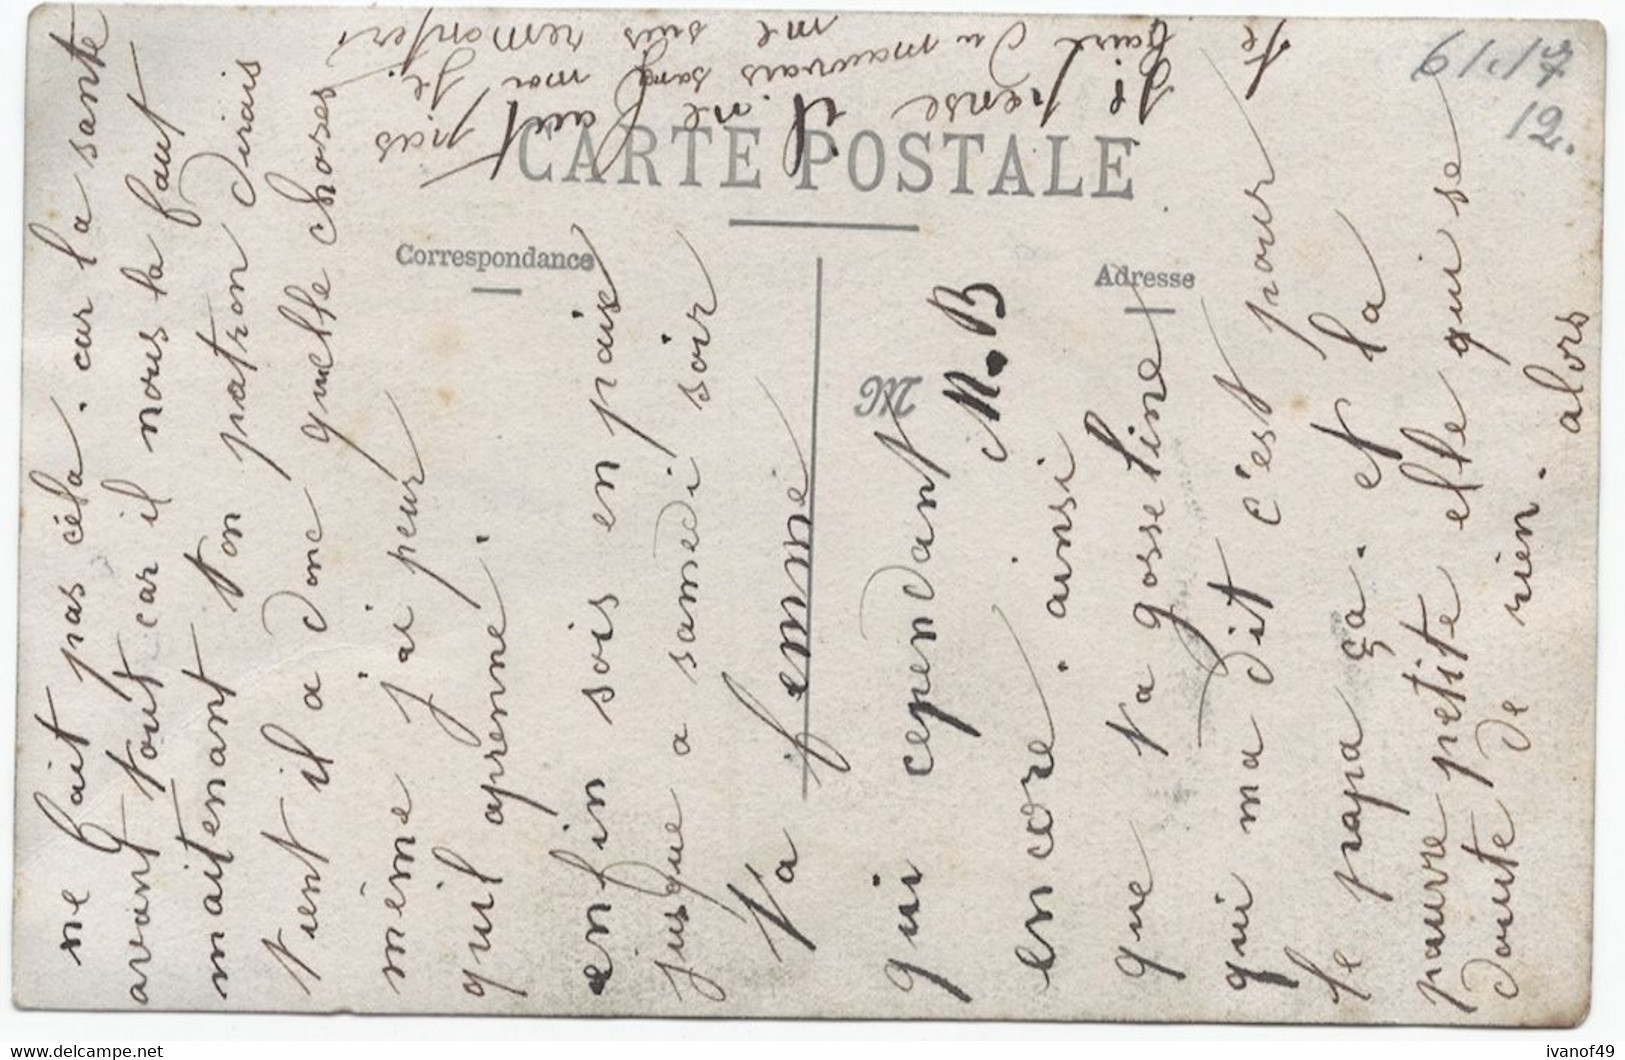 CARTE POSTALE
Correspondance
Adresse
M
61.17
12.
ne fait pas céla. car la sante
avant tout car il nous la faut
maitenant ton patron durais
tient il a donc quelle choses
même j'ai peur
quil aprenne.
enfin sois en paix
jusque a samedi soir
Ta femme
M.B
qui cependant
encore. ainsi
que ta gosseline
qui ma dit c'est pour
le papa ça. et la
pauvre petite elle qui se
doute de rien. alors
je pense il ne faut pas
te faire du mauvais sang moi je
me suis remonter
ivanof49